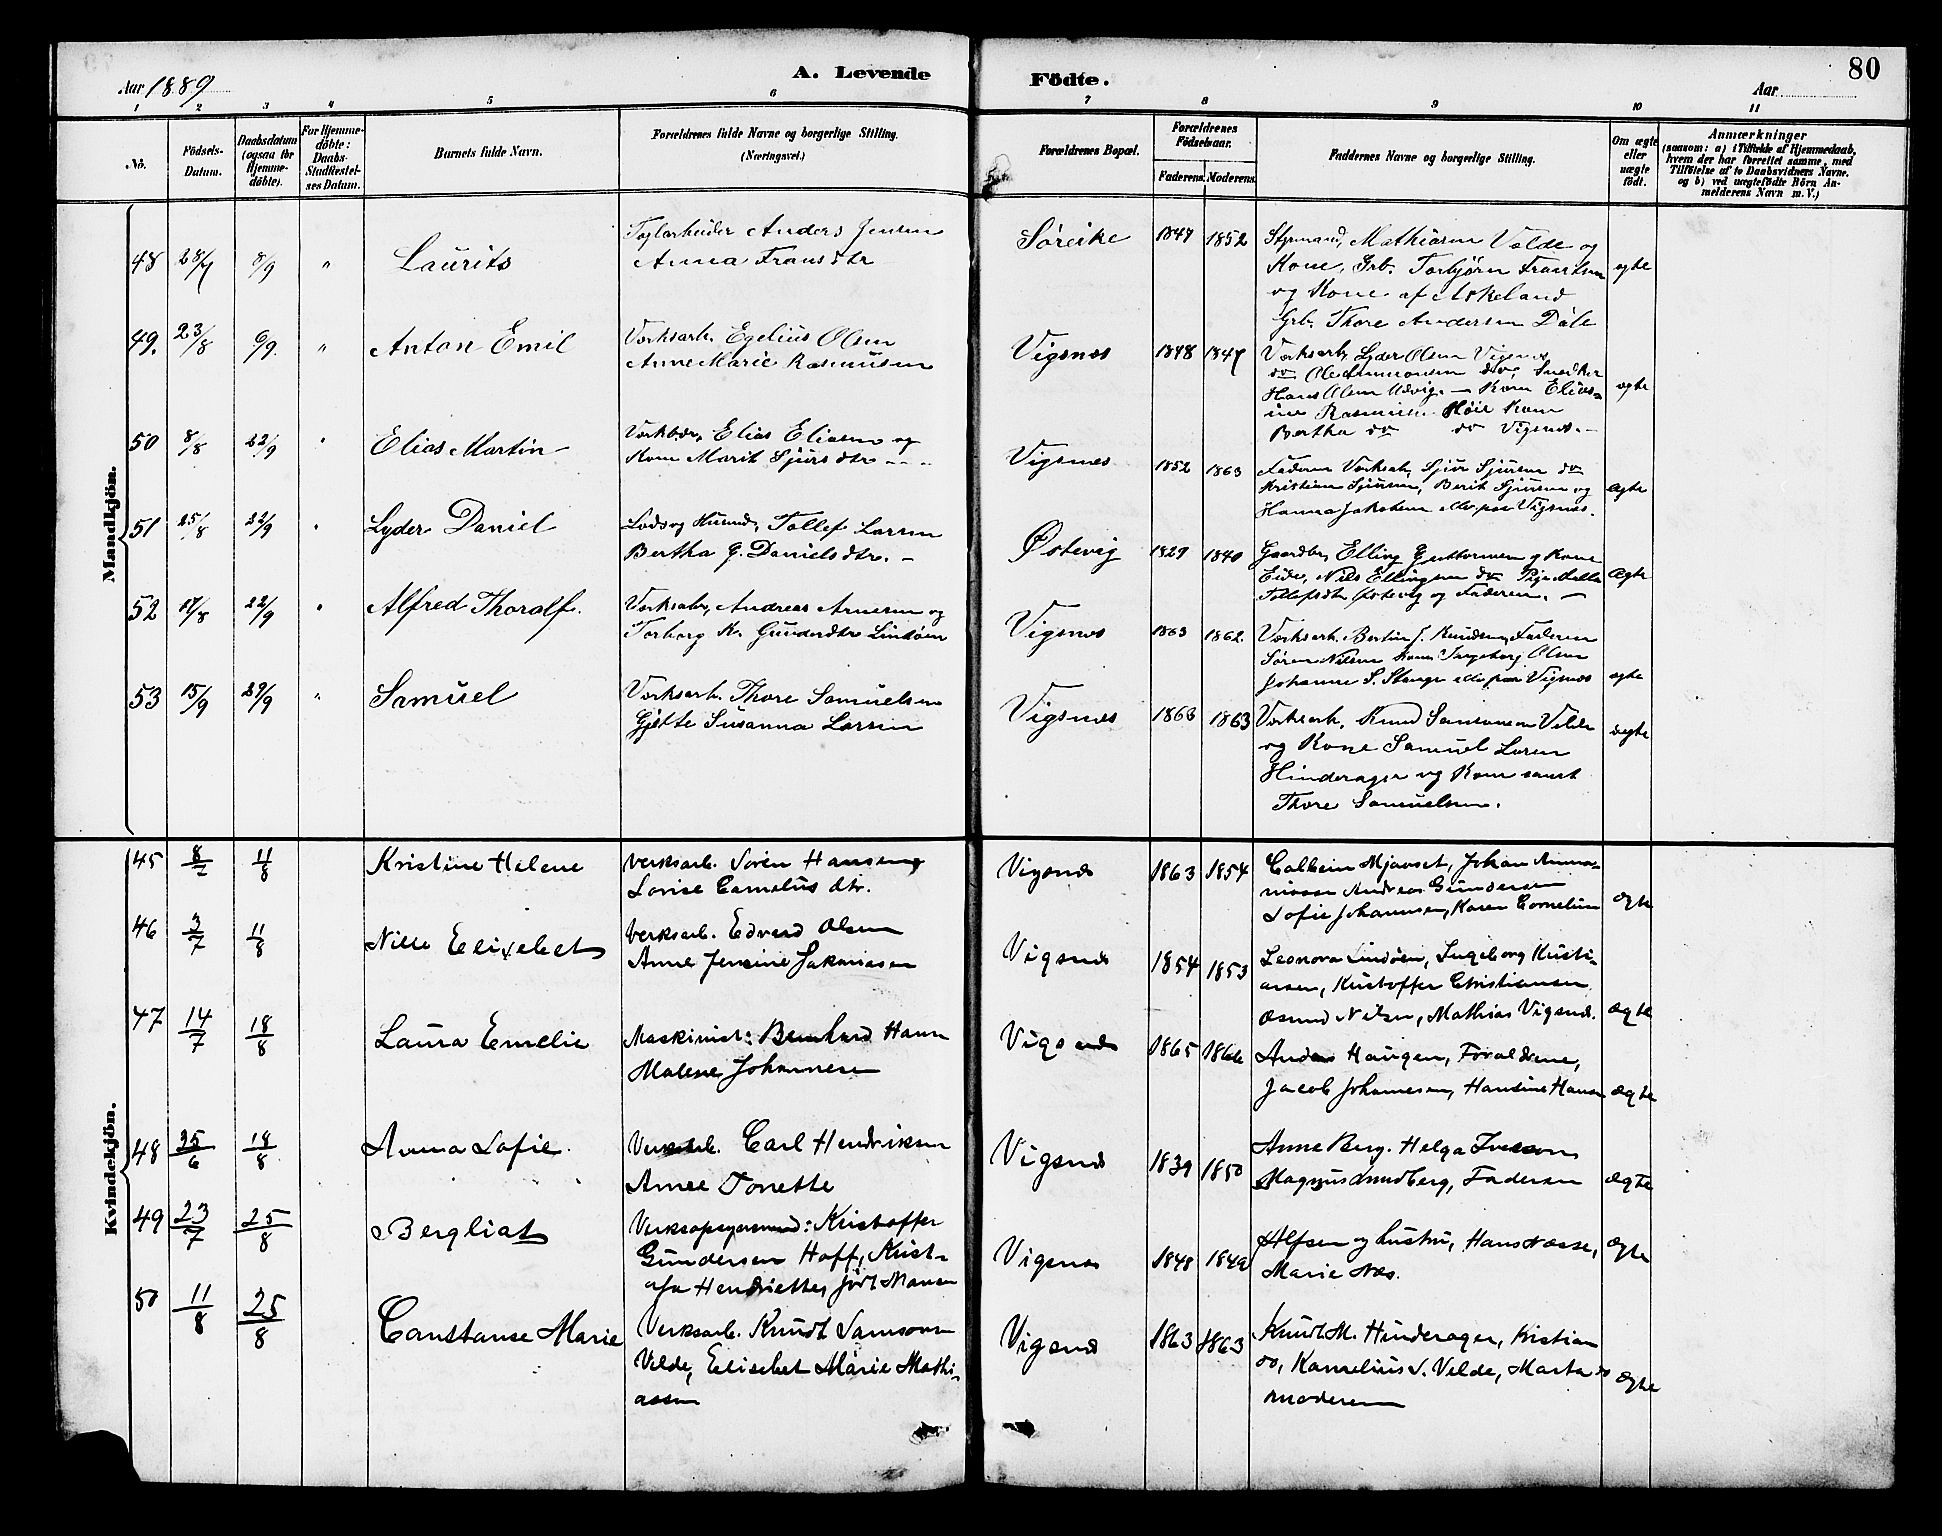 80
Aar 1889
A. Levende Födte.
Aar
1 2 3 4 5 6 7 8 9 10 11
No.
Födsels-Datum.
Daabsdatum (ogsaa for Hjemmedöbte).
For Hjemmedöbte: Daabs-Stadfæstelses Datum.
Barnets fulde Navn.
Forældrenes fulde Navne og borgerlige Stilling.
(Næringsvei.)
Forældrenes Bopæl.
Forældrenes Födselsaar.
Faderens. Moderens.
Faddernes Navne og borgerlige Stilling.
Om ægte eller uægte födt.
Anmærkninger
(saasom: a) i Tilfælde af Hjemmedaab, hvem der har forrettet samme, med Tilföielse af to Daabsvidners Navne. og b) ved uægtefödte Börn Anmelderens Navn m. V.)
Mandkjön.
48 8/9 " Laurits
Anders Jensen
Anna Fransdtr
Søreike 1847 1852
Styrmand, Mathiasen Valde og
Kone, Grb. Torbjørn Frantsen
og Kone af Askeland
Grb. Thore Andersen Dale
egte
49. 23/8 9/9. " Anton Emil
Værksarb. Egelius Olsen
Anne Marie Rasmussen
Vigsnes 1848 1847
Værksarb, Lyder Olsen Vigsnes
do Ole do, Snedker
Hans Olsen Udvig. – Kone
Rasmussen Kone
Bertha do do Vigsnes. –
egte
50 8/8 22/9 " Elias Martin
Elias Eliasen og
Kone Marit Sjursdtr
Vigsnes 1852 1863
Faderen Værksarb, Sjur Sjursen do
Kristian Sjursen, Berit Sjursen og
Hanna Jakobsen alle paa Vigsnes.
ægte
51 25/8 22/9 " Lyder Daniel
Lods og Husmd, Tollef Larsen
Bertha G. Danielsdtr. –
Østevig 1829 1840
Gaardbr, Elling Guttormsen og Kone
Eide, Nils Ellingsen do Pige
Tollefsdtr Østevig og Faderen. –
ægte
52 17/8 22/9 " Alfred Thoralf.
Værksarb, Andreas Arnesen og
Torborg K. Gundersdtr Lindøen
Vigsnes 1863 1862.
Værksarb. Bertin J. Knudsen, Faderen
Søren Nilsen Kone Ingeborg Olsen
Johanne S. Stange alle paa Vigsnes
egte
53 15/9 29/9 " Samuel
Værksarb. Thore Samuelsen
Gjette Susanna Larsen
Vigsnes 1866 1863
Værksarb. Knud Samsonsen Velde
og Kone Samuel Larsen
Hinderager og Kone samt
Thore Samuelsen.
ægte
Kvindekjön.
45 8/7 11/8 Kristine Helene
Verksarb. Søren Hansen
Lovise Cornelius dtr.
Vigsnes 1863 1854
Mjaaset, Johan
Andreas Gundersen
Sofie Johannesen, Karen Cornelius
ægte
46 3/7 11/8 Nille Elisebet
Verksarb. Edvard Olsen
Anne Jensine Jakobiasen
Vigsnes 1854 1853
Leonora Lindøen, Ingeborg Kristi-
ansen, Kristoffer Christiansen
Nilsen, Mathias Vigsnes.
ægte
47 14/7 18/8 Laura Emelie
Maskinist: Bernhard Hansen
Malene Johannesen
Vigsnes 1865 1866
Anders Haugen, Forældrene,
Jacob Johannesen, Hansine Hansen
ægte
48 25/6 18/8 Anna Sofie.
Verksarb. Carl Hendriksen
Anne Tonette
Vigsnes 1839 1850
Anne Berg. Helga Iversen
Magnus Sundberg, Faderen
ægte
49 23/7 25/8 Bergliot
Kristoffer
Gundersen Hoff, Krist-
ofa Henriette, født Monsen
Vigsnes 1848 1849
Alfsen og hustru, Hans Næsse,
Marie Næs.
ægte
50 11/8 25/8 Constanse Marie
Verksarb. Knudt Samson
Velde, Elisebet Marie Mathi-
assen
Vigsnes 1863 1863
Knudt M. Hinderager, Kristian
do, Kornelius S. Velde, Marta do
moderen
ægte